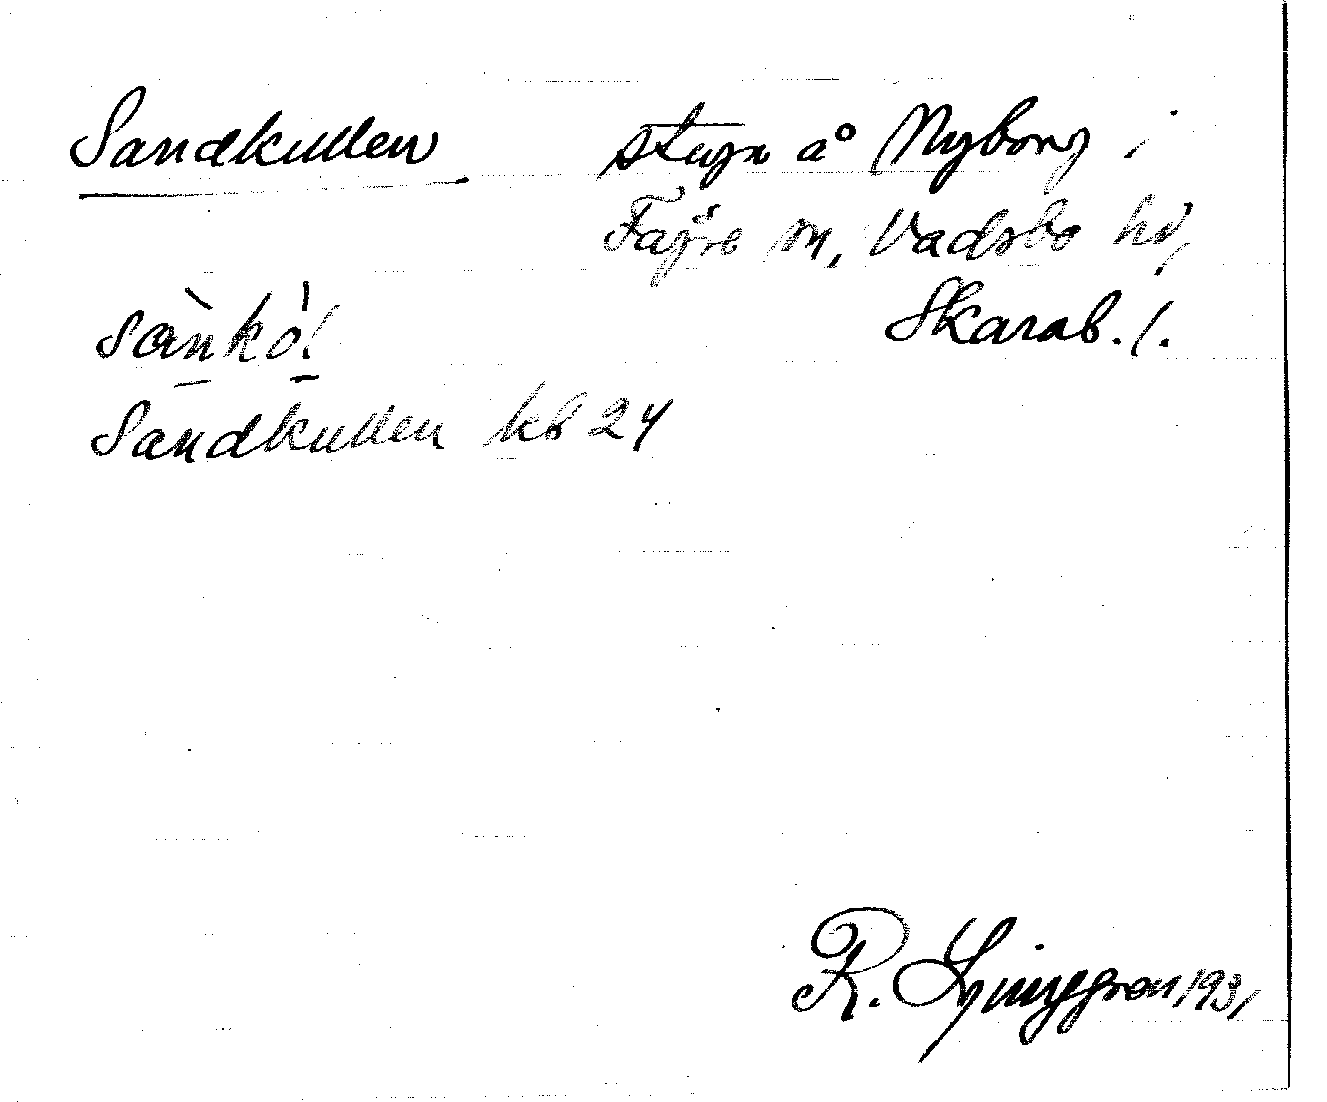 Sandkullen stuga å Nyborg i
Fägre sn, Vadsbo hd,
Skarab. l.
sànkó!
Sandkullen kb 24
R. Ljunggren 1931